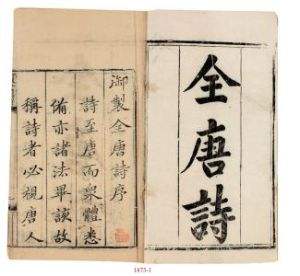 全唐詩
御製全唐詩序
詩至唐而眾體悉
備亦諸法畢該故
稱詩者必視唐人
1473-1